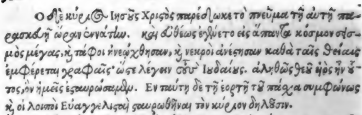 Ὁ δὲ κύριος Ἰησοῦς Χριστὸς παρέδωκε τὸ πνεῦμα τῇ αὐτῇ παρα-
σκευῇ ὥρᾳ ἐννάτῃ. καὶ εὐθέως ἐγένετο εἰς ἅπαντα κόσμον σεισ-
μὸς μέγας, καὶ τάφοι ἠνεῴχθησαν, καὶ νεκροὶ ἀνέστησαν καθὰ ταῖς θείαις
ἐμφέρεται γραφαῖς· ὥστε λέγειν τοὺς Ἰουδαίους. ἀληθῶς θεοῦ υἱὸς ἦν οὗ-
τος, ὃν ἡμεῖς ἐσταυρώσαμεν. Ἐν ταύτῃ δὲ τῇ ἑορτῇ τοῦ πάσχα συμφώνως
καὶ οἱ λοιποὶ Εὐαγγελισταὶ σταυρωθῆναι τὸν κύριον δηλοῦσιν.